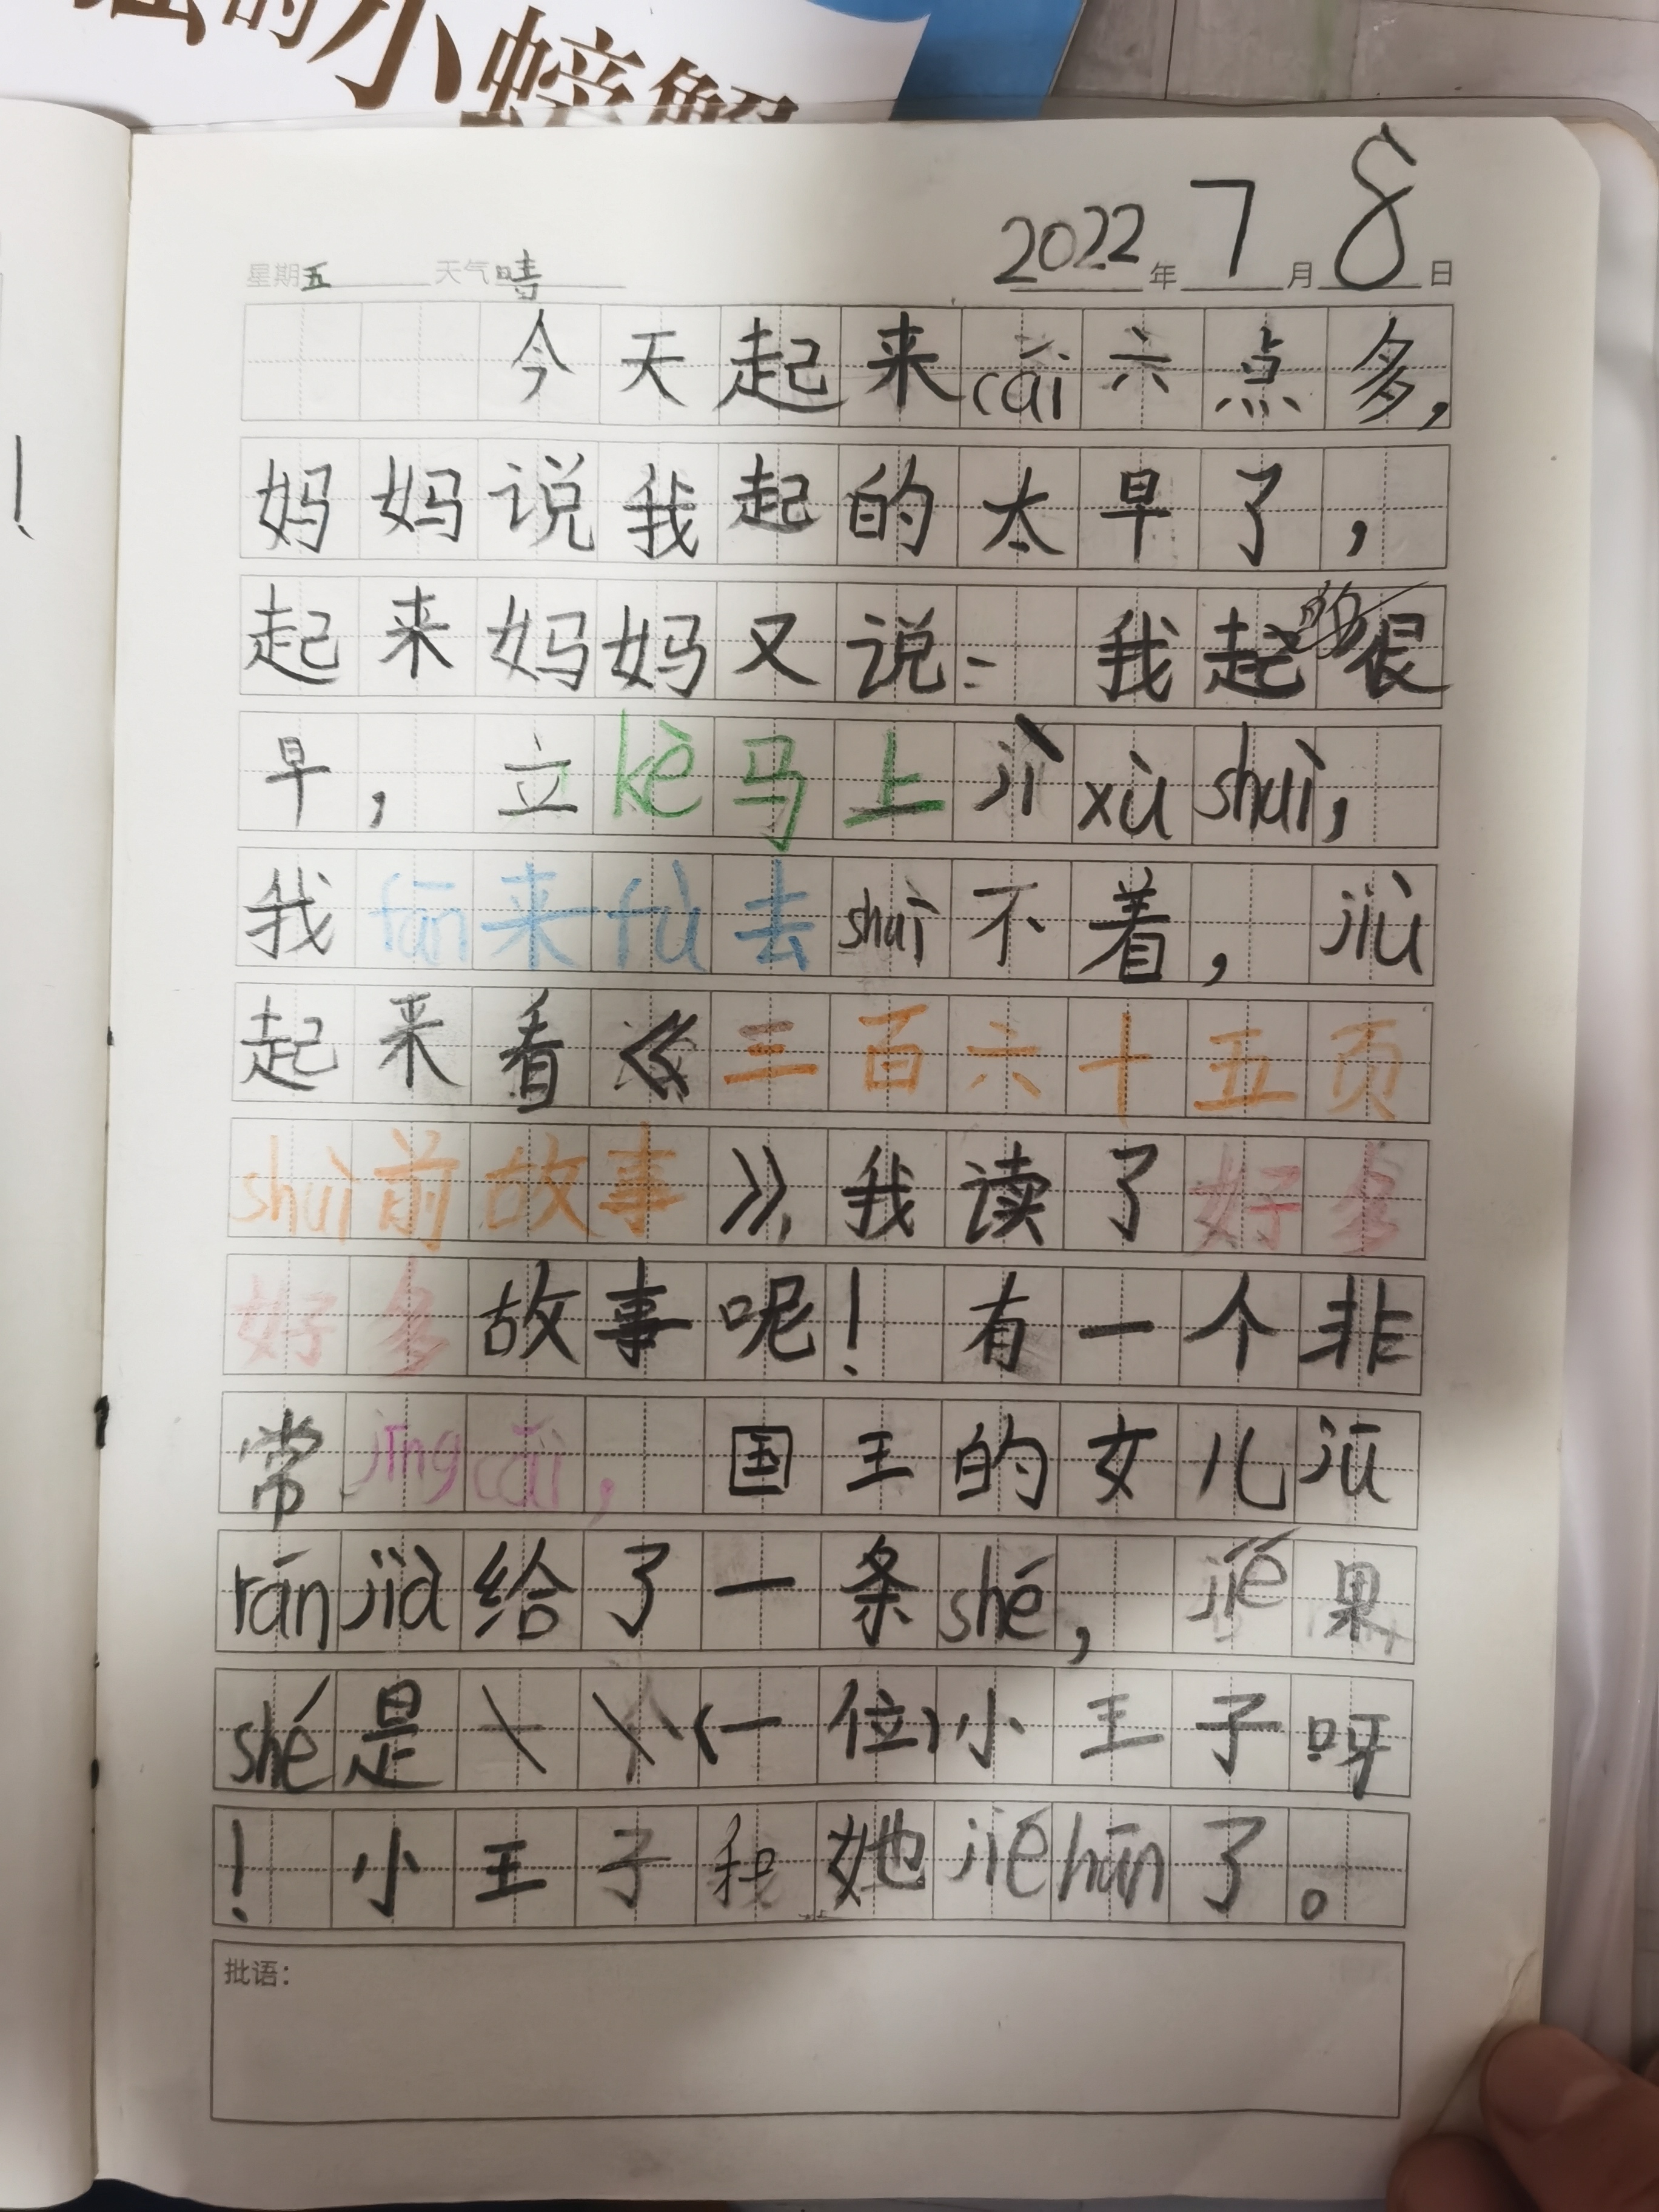 的小螃蟹
2022年7月8日
星期五 天气晴
今天起来cái六点多，
妈妈说我起的太早了，
起来妈妈又说：我起很
早，立kè马上jì xù shuì，
我fān来fù去shuì不着，jiù
起来看《三百六十五页
shuì前故事》，我读了好多
好多故事呢！有一个非
常jīng cǎi，国王的女儿jū
rán jià给了一条shé，jié果
shé是（一位）小王子呀
！小王子和她jié hūn了。
批语：
！